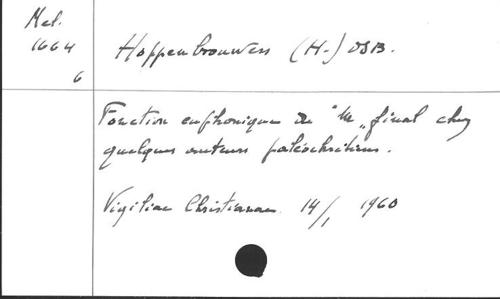 Mel.
1664
6
Hoppenbrouwers (H.) OSB.
Fonction euphonique du "M" final chez
quelques auteurs paléochrétiens.
Vigiliae Christianae 14/1 1960